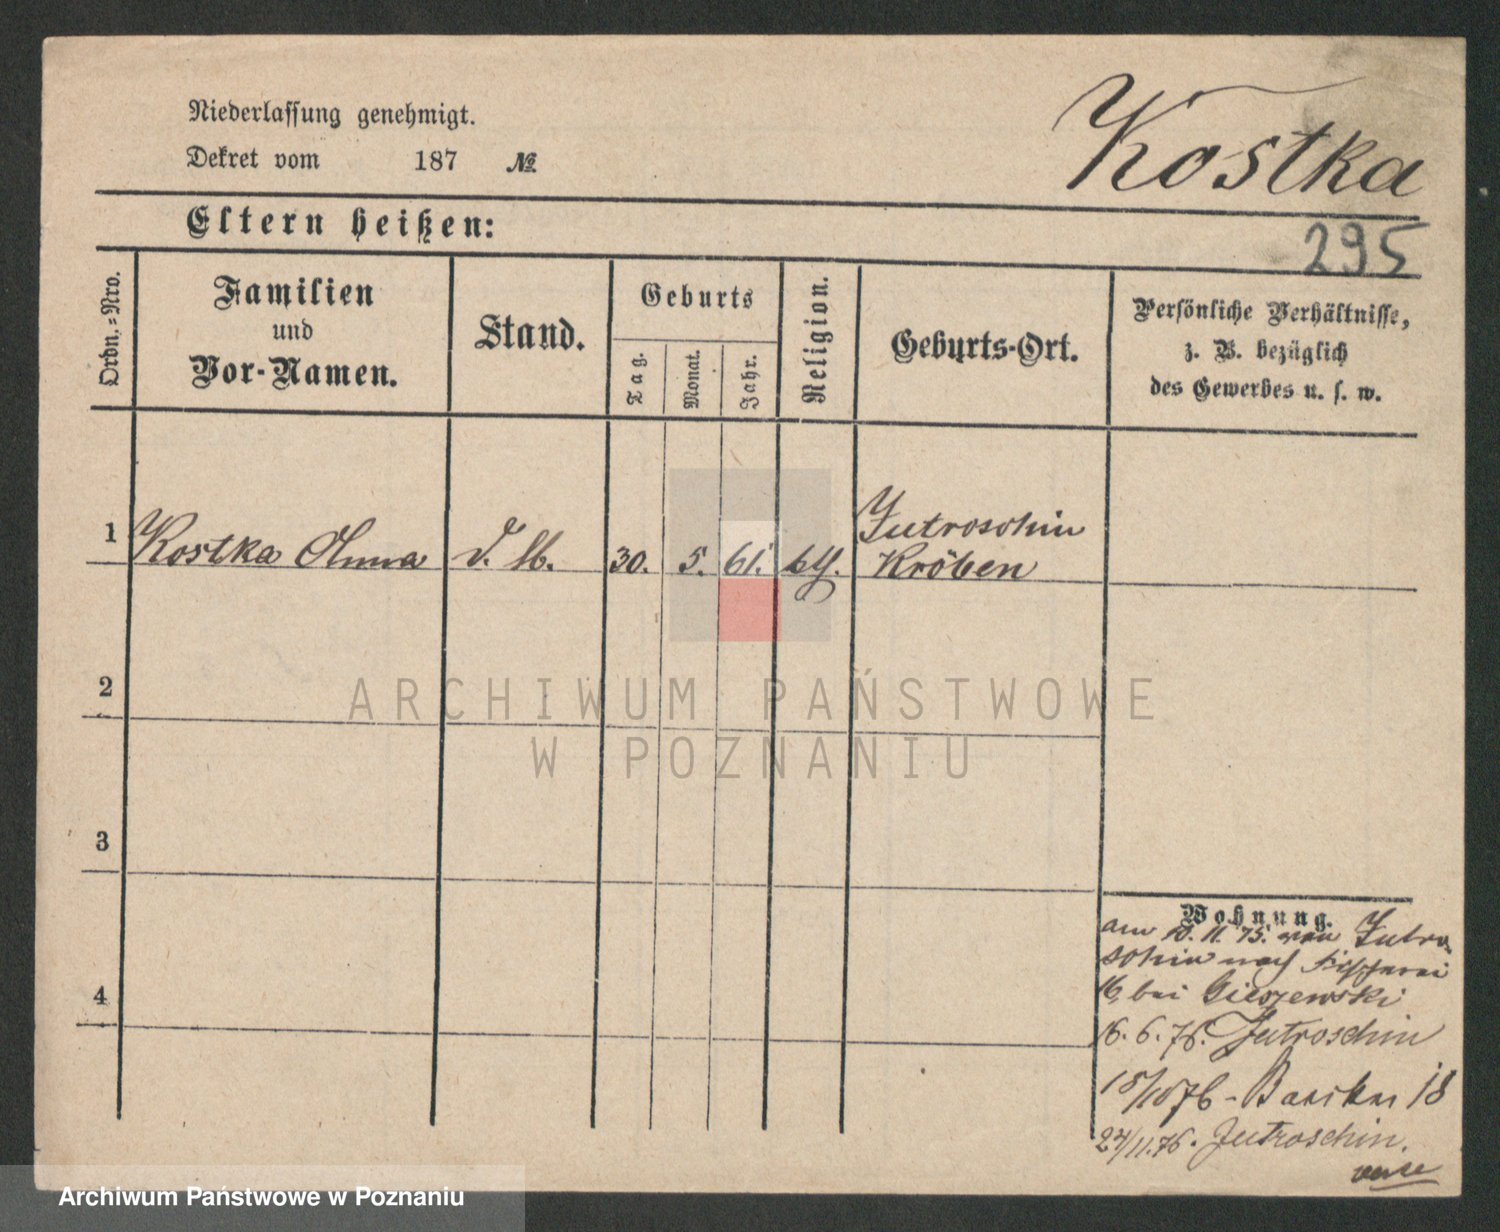 Niederlassung genehmigt.
Dekret vom 187 №
Kostka
Eltern heißen:
295
Ordn.-Nro.
Familien
und
Vor-Namen.
Stand.
Geburts
Tag.
Monat.
Jahr.
Religion.
Geburts-Ort.
Persönliche Verhältnisse,
z. B. bezüglich
des Gewerbes u. s. w.
1 Kostka Anna 30. 5. 61. Jutroschin
Kröben
2
ARCHIWUM PAŃSTWOWE
W POZNANIU
3
4
Wohnung.
am 10. 11. 75. von Jutro-
schin nach Fischerei
16 bei Gieszewski
16. 6. 76. Jutroschin
18
24/11.76. Jutroschin.
verte
Archiwum Państwowe w Poznaniu